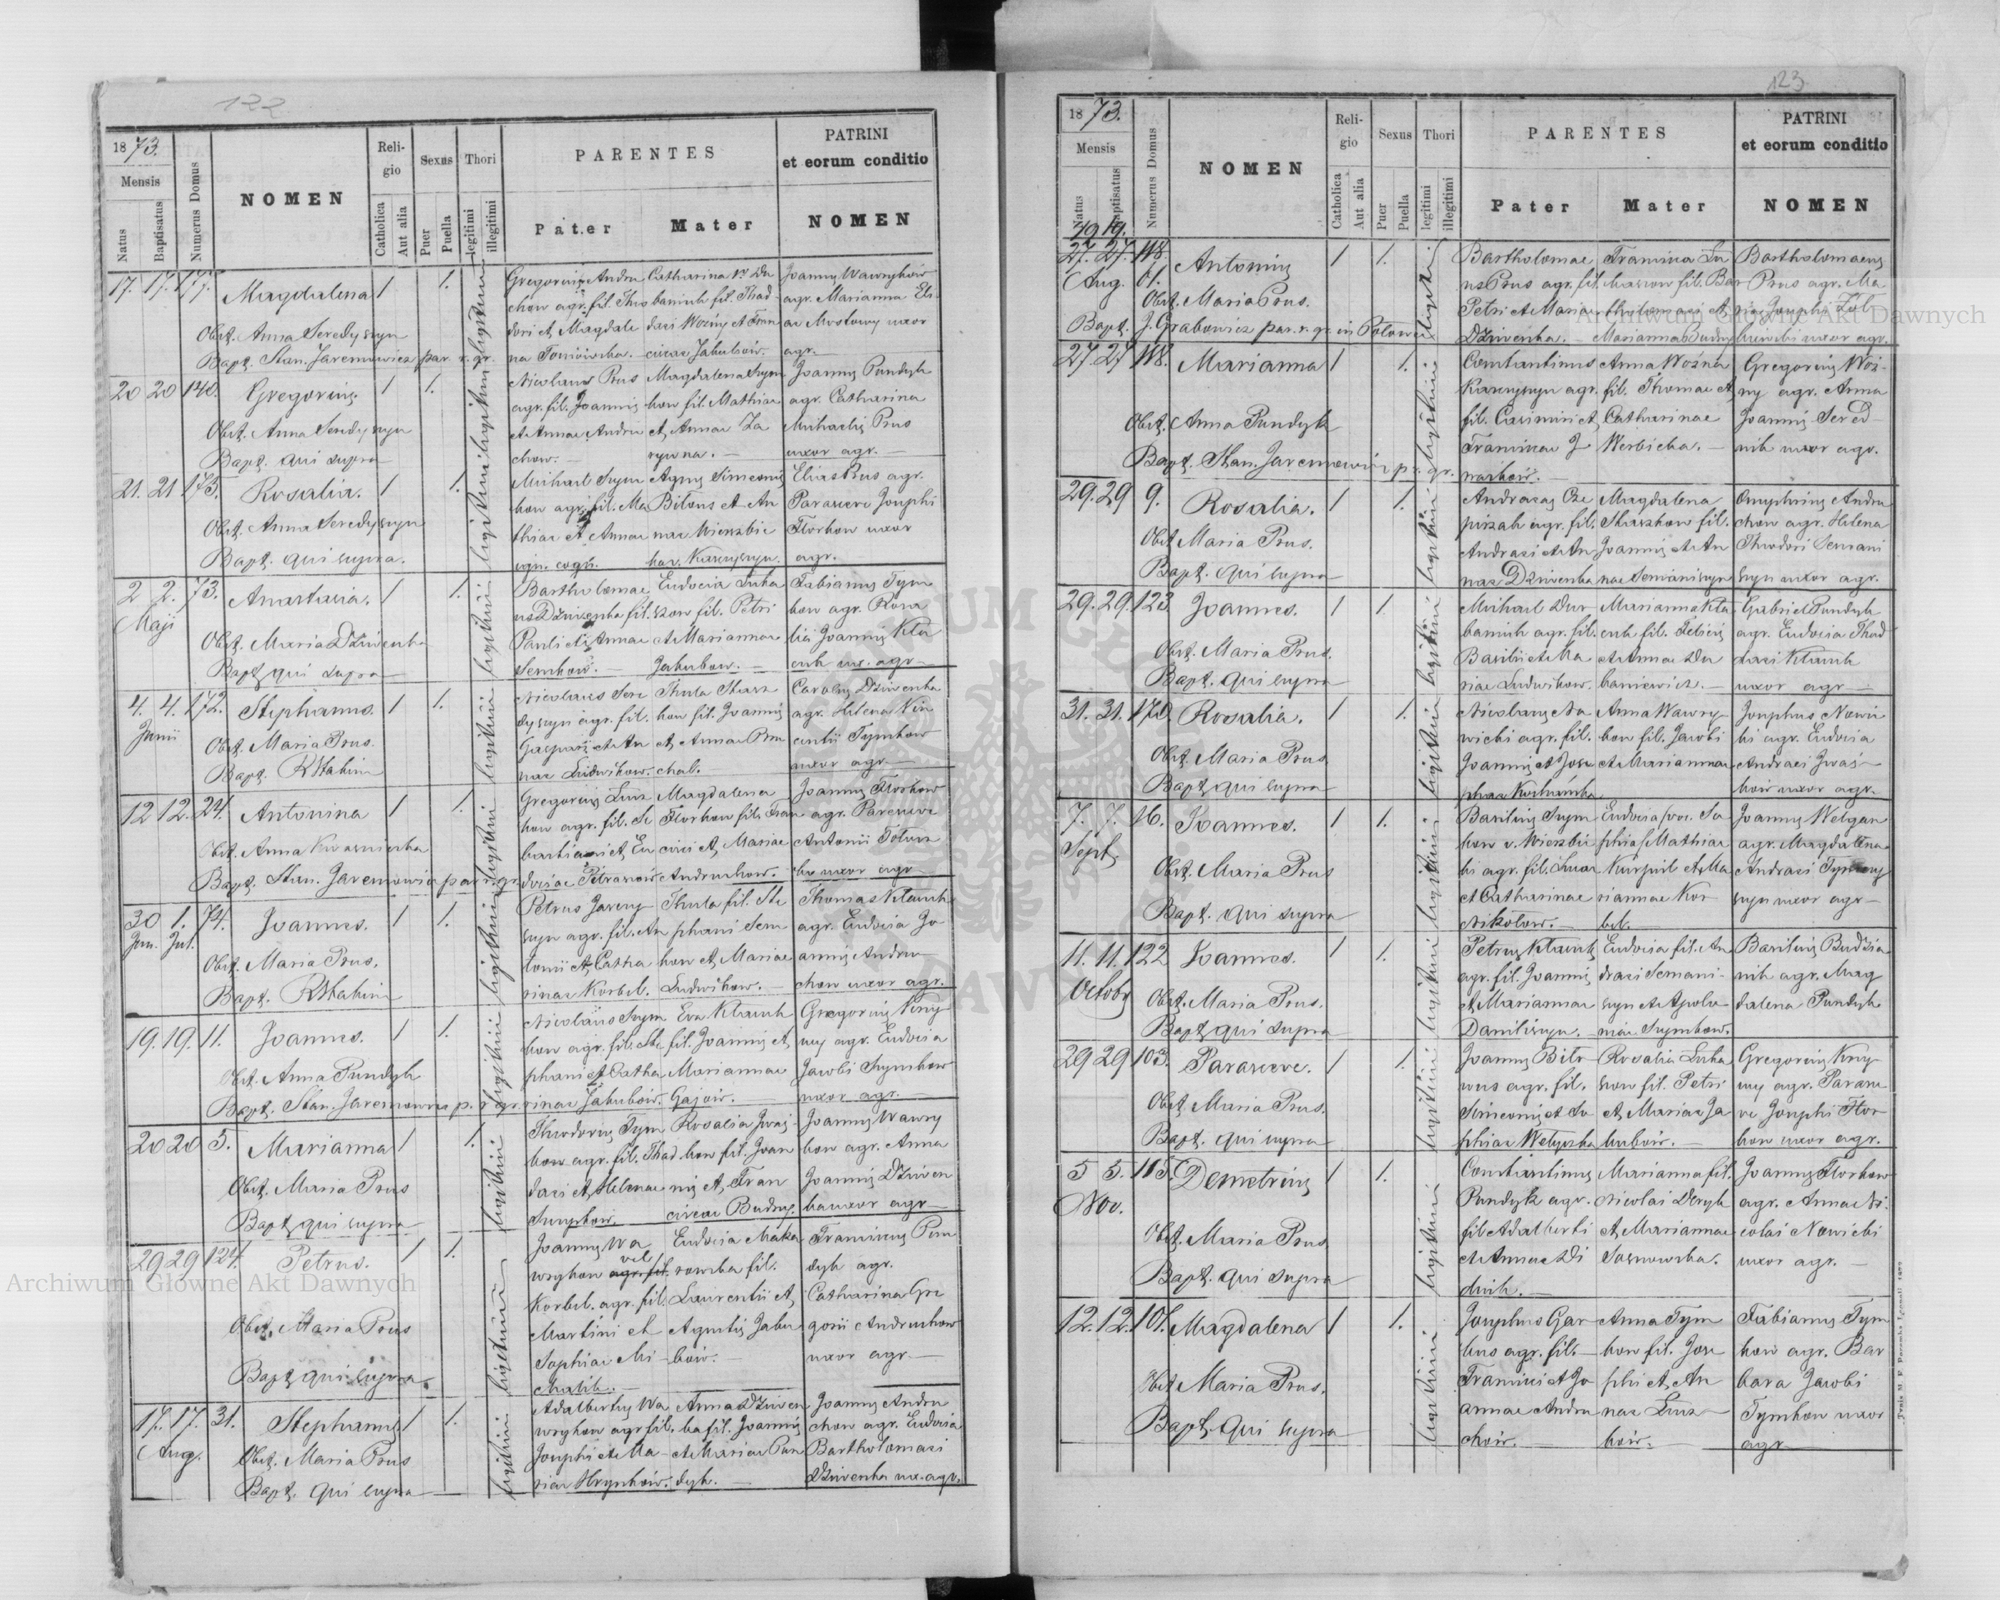 122
1873.
Mensis
Natus
Baptisatus
Numerus Domus
NOMEN
Reli-
gio
Catholica
Aut alia
Sexus
Puer
Puella
Thori
legitimi
illegitimi
PARENTES
Pater
Mater
PATRINI
et eorum conditio
NOMEN
17. 17. 177. Magdalena 1 1.
Obst. Anna Seredyszyn
Bapt. Stan. Jaremowicz par. r. gr.
legitimi
Gregorius Andru
chow agr. fil. Theo
dori et Magdale
na Tomiowska.
Catharina
baniuk fil. Thad
daei Woźny et Fran
ciscae Jakubow.
Joannes Wawryków
agr. Marianna Eli
ae Mostowy uxor
agr.
20 20 140. Gregorius. 1 1.
Obst. Anna Seredyszyn
Bapt. qui supra
legitimi
Nicolaus Prus
agr. fil. Joannis
et Annae Andru
chow.
Magdalena Szym
kow fil. Mathiae
et Annae Za
rywna.
Joannes Pundyk
agr. Catharina
Michaelis Prus
uxor agr.
21. 21 175. Rosalia. 1 1.
Obst. Anna Seredyszyn
Bapt. qui supra.
legitimi
Michael Szym
kow agr. fil. Ma
thiae et Annae
Agnes Simeonis
Bilous et An
nae Wierzbic
Elias Prus agr.
Parasceve Josephi
Florkow uxor
agr.
2 2. 73. Anastasia. 1 1.
Maji
Obst. Maria Dziwenka
Bapt. qui supra
legitimi
Bartholomae
us Dziwenka fil.
Pauli et Annae
Semkow.
Eudocia Luka
szow fil. Petri
et Mariannae
Jakubow.
Fabianus Tym
kow agr. Rosa
lia Joannis Kla
cuk ux. agr.
4. 4. 172. Stephanus. 1 1.
Junii
Obst. Maria Prus.
Bapt.
legitimi
Nicolaus Sere
dyszyn agr. fil.
Gasparis et An
nae Ludwikow.
Thecla Stasz
kow fil. Joannis
et Annae
Carolus Dziwenka
agr. Helena Vin
centii Tymkow
uxor agr.
12 12. 24. Antonina 1 1.
Obst. Anna Kwasnicka
Bapt. Stan. Jaremowicz par. r. gr.
legitimi
Gregorius Lusz
kow agr. fil. Se
bastiani et Eu
dociae Petrasow
Magdalena
Florkow fil. Fran
cisci et Mariae
Andruchow.
Joannes Florkow
agr. Parasceve
Antonii
uxor agr.
30 1. 74. Joannes. 1 1.
Jun. Jul.
Obst. Maria Prus.
Bapt.
legitimi
Petrus Jarem
szyn agr. fil. An
tonii et Catha
rinae Korbel.
Thecla fil. Ste
phani Sem
kow et Mariae
Ludwikow.
Thomas Klamk
agr. Eudocia Jo
annis Andru
chow uxor agr.
19. 19. 11. Joannes. 1 1.
Obst. Anna Pundyk
Bapt. Stan. Jaremowicz p. r. gr.
legitimi
Nicolaus Szym
kow agr. fil. Ste
phani et Catha
rinae Jakubow.
Eva Klamk
fil. Joannis et
Mariannae
Gajow.
Gregorius
agr. Eudocia
Jacobi Szymkow
uxor agr.
20 20 5. Marianna 1 1.
Obst. Maria Prus
Bapt. qui supra
legitimi
Theodorus Tym
kow agr. fil. Thad
daei et Helenae
Rosalia Iwaś-
kow fil. Joan
nis et Fran
ciscae
Joannes Wawry
kow agr. Anna
Joannis Dziwen
ka uxor agr.
29 29 124. Petrus. 1 1.
Obst. Maria Prus
Bapt. qui supra.
legitimi
Joannes Wa
wrykow vel agr. fil.
Korbel. agr. fil.
Martini et
Sophiae Mi
chalik.
Eudocia Maka
rowska fil.
Laurentii et
Agnetis Jaku
bow.
Franciscus Pun
dyk agr.
Catharina Gre
gorii Andruchow
uxor agr.
17. 17. 31. Stephanus. 1 1.
Aug.
Obst. Maria Prus
Bapt. qui supra
legitimi
Adalbertus Wa
wrykow agr. fil.
Josephi et Ma
riae Hrynków.
Anna Dziwen
ka fil. Joannis
et Mariae Pun
dyk.
Joannes Andru
chow agr. Eudocia
Bartholomaei
Dziwenka ux. agr.
123
1873.
Mensis
Natus
Baptisatus
Numerus Domus
NOMEN
Reli-
gio
Catholica
Aut alia
Sexus
Puer
Puella
Thori
legitimi
illegitimi
PARENTES
Pater
Mater
PATRINI
et eorum conditio
NOMEN
27. 27. 118. Antonius 1 1.
Aug.
Obst. Maria Prus.
Bapt. J. Grabowicz par. r. gr. in
legitimi
Bartholomae
us Prus agr. fil.
Petri et Mariae
Dziwenka.
Francisca Lu
kaszow fil. Bar
tholomaei et
Marianna
Bartholomaeus
Prus agr. Ma
ria Josephi
uxor agr.
27 27 118. Marianna 1 1.
Obst. Anna Pundyk
Bapt. Stan. Jaremowicz p. r. gr.
legitimi
Constantinus
Karczyszyn agr.
fil. Casimiri et
Franciscae J
Anna Woźna
fil. Thomae et
Catharinae
Werbicka.
Gregorius Woź-
ny agr. Anna
Joannis Sered
nik uxor agr.
29. 29 9. Rosalia. 1 1.
Obst. Maria Prus.
Bapt. qui supra
legitimi
Andreas Cze
pizak agr. fil.
Andraei et An
nae Dziwenka
Magdalena
Staszkow fil.
Joannis et An
nae Semaniszyn
Onuphrius Andru
chow agr. Helena
Theodori Semani
szyn uxor agr.
29. 29. 123. Joannes. 1 1.
Obst. Maria Prus.
Bapt. qui supra
legitimi
Michael Dur
baniuk agr. fil.
Basilii et Ma
riae Ludwikow.
Marianna Kla
cuk fil. Felicis
et Annae Du
baniewicz.
Gabriel Pundyk
agr. Eudocia Thad
daei Klamk
uxor agr.
31. 31. 170. Rosalia. 1 1.
Obst. Maria Prus.
Bapt. qui supra
legitimi
Nicolaus No
wicki agr. fil.
Joannis et Jose
phae
Anna Wawry
kow fil. Jacobi
et Mariannae
Josephus Nowic
ki agr. Eudocia
Andraei Iwaś-
kow uxor agr.
7. 7. 16. Joannes. 1 1.
Sept.
Obst. Maria Prus
Bapt. qui supra
legitimi
Basilius Szym
kow v. Wierzbic
ki agr. fil. Lucae
et Catharinae
Nikolow.
Eudocia
Mathiae
et Ma
riannae Kor
bel.
Joannes Welgan
agr. Magdalena
Andraei
szyn uxor agr.
11. 11. 122 Joannes. 1 1.
Octobr.
Obst. Maria Prus.
Bapt. qui supra
legitimi
Petrus Klamk
agr. fil. Joannis
et Mariannae
Daniliszyn.
Eudocia fil. An
draei Semani-
szyn et Apolo
niae Szymkow.
Basilius Budzia
nik agr. Mag
dalena Pundyk
29 29 103. Parasceve. 1 1.
Obst. Maria Prus.
Bapt. qui supra
legitimi
Joannes Bilo-
wus agr. fil.
Simeonis et So
phiae
Rosalia Luka
szow fil. Petri
et Mariae Ja
kubow.
Gregorius
agr. Parasce
ve Josephi Flor
kow uxor agr.
5 5. 115. Demetrius 1 1.
Nov.
Obst. Maria Prus
Bapt. qui supra
legitimi
Constantinus
Pundyk agr.
fil. Adalberti
et Annae Di
duch.
Marianna fil.
Nicolai Deryk
et Mariannae
Sosnowska.
Joannes Florkow
agr. Anna Ni
colai Nowicki
uxor agr.
12. 12. 101. Magdalena 1 1.
Obst. Maria Prus.
Bapt. qui supra
legitimi
Josephus Gar
bus agr. fil.
Francisci et Jo
annae Andru
chow.
Anna Tym
kow fil. Jose
phi et An
nae Lusz
kow.
Fabianus Tym
kow agr. Bar
bara Jacobi
Tymkow uxor
agr.
Archiwum Główne Akt Dawnych
Archiwum Główne Akt Dawnych